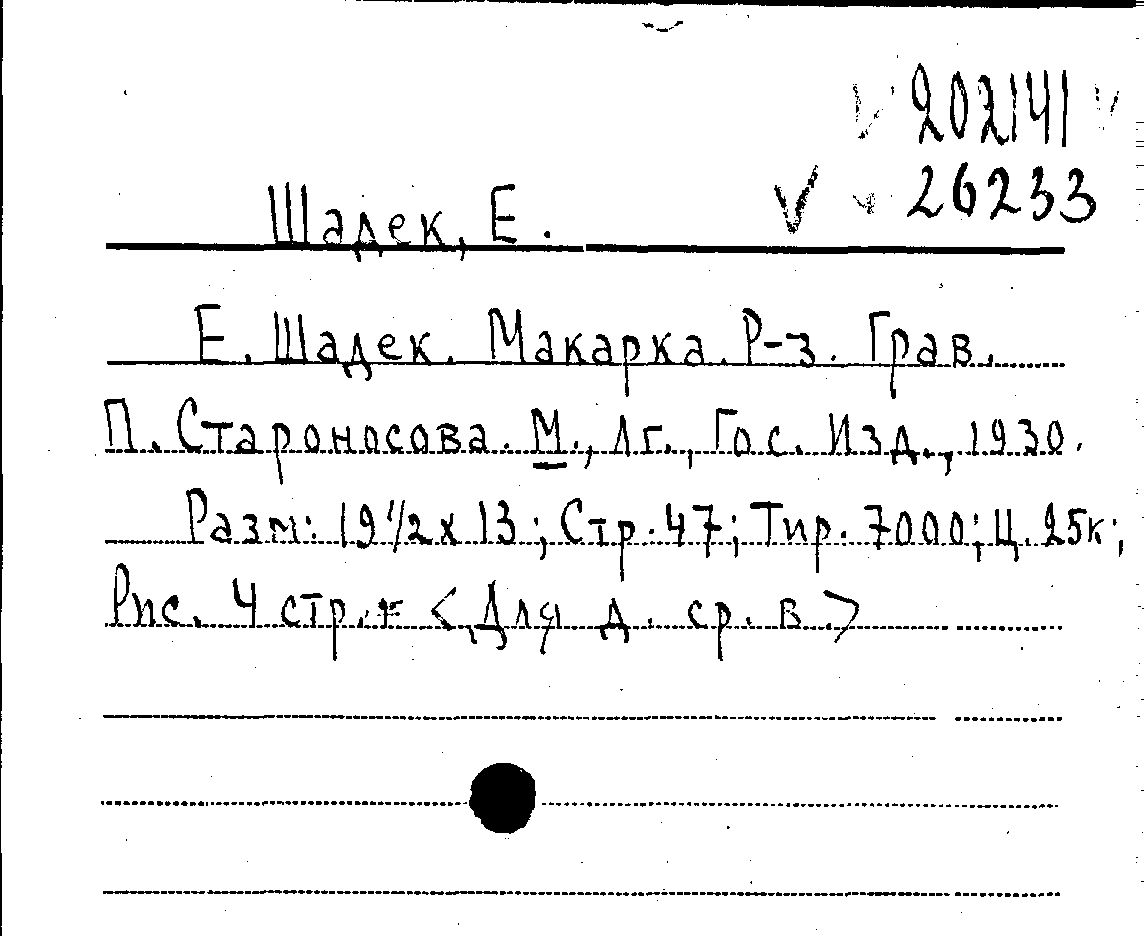 202141
26233
Шадек, Е.
Е. Шадек. Макарка. Р-з. Грав.
П. Староносова. М., Лг., Гос. Изд., 1930.
Разм: 19 1/2 х 13; Стр. 47; Тир. 7000; Ц. 25к;
Рис. 4 стр. + <Для д. ср. в.>